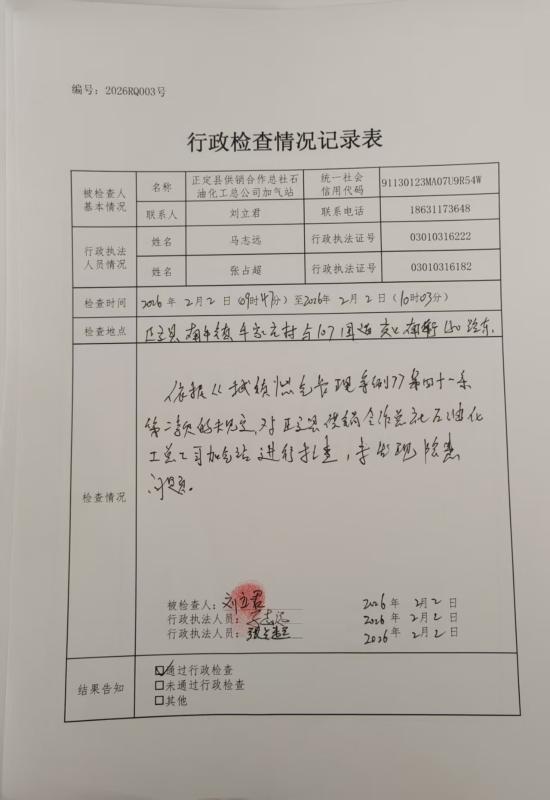 编号：2026RQ003号
行政检查情况记录表
被检查人
基本情况
名称
正定县供销合作总社石
油化工总公司加气站
统一社会
信用代码
91130123MA07U9R54W
联系人
刘立君
联系电话
18631173648
行政执法
人员情况
姓名
马志远
行政执法证号
03010316222
姓名
张占超
行政执法证号
03010316182
检查时间
2026年2月2日(09时47分)至2026年2月2日(10时03分)
检查地点
正定县南牛镇牛家庄村与107国道交口南行150路东.
检查情况
依据《城镇燃气管理条例》第四十一条
第二款的规定,对正定县供销合作总社石油化
工总公司加气站进行检查,未发现隐患
问题。
被检查人：刘立君 2026年2月2日
行政执法人员：马志远 2026年2月2日
行政执法人员：张占超 2026年2月2日
结果告知
☑通过行政检查
□未通过行政检查
□其他